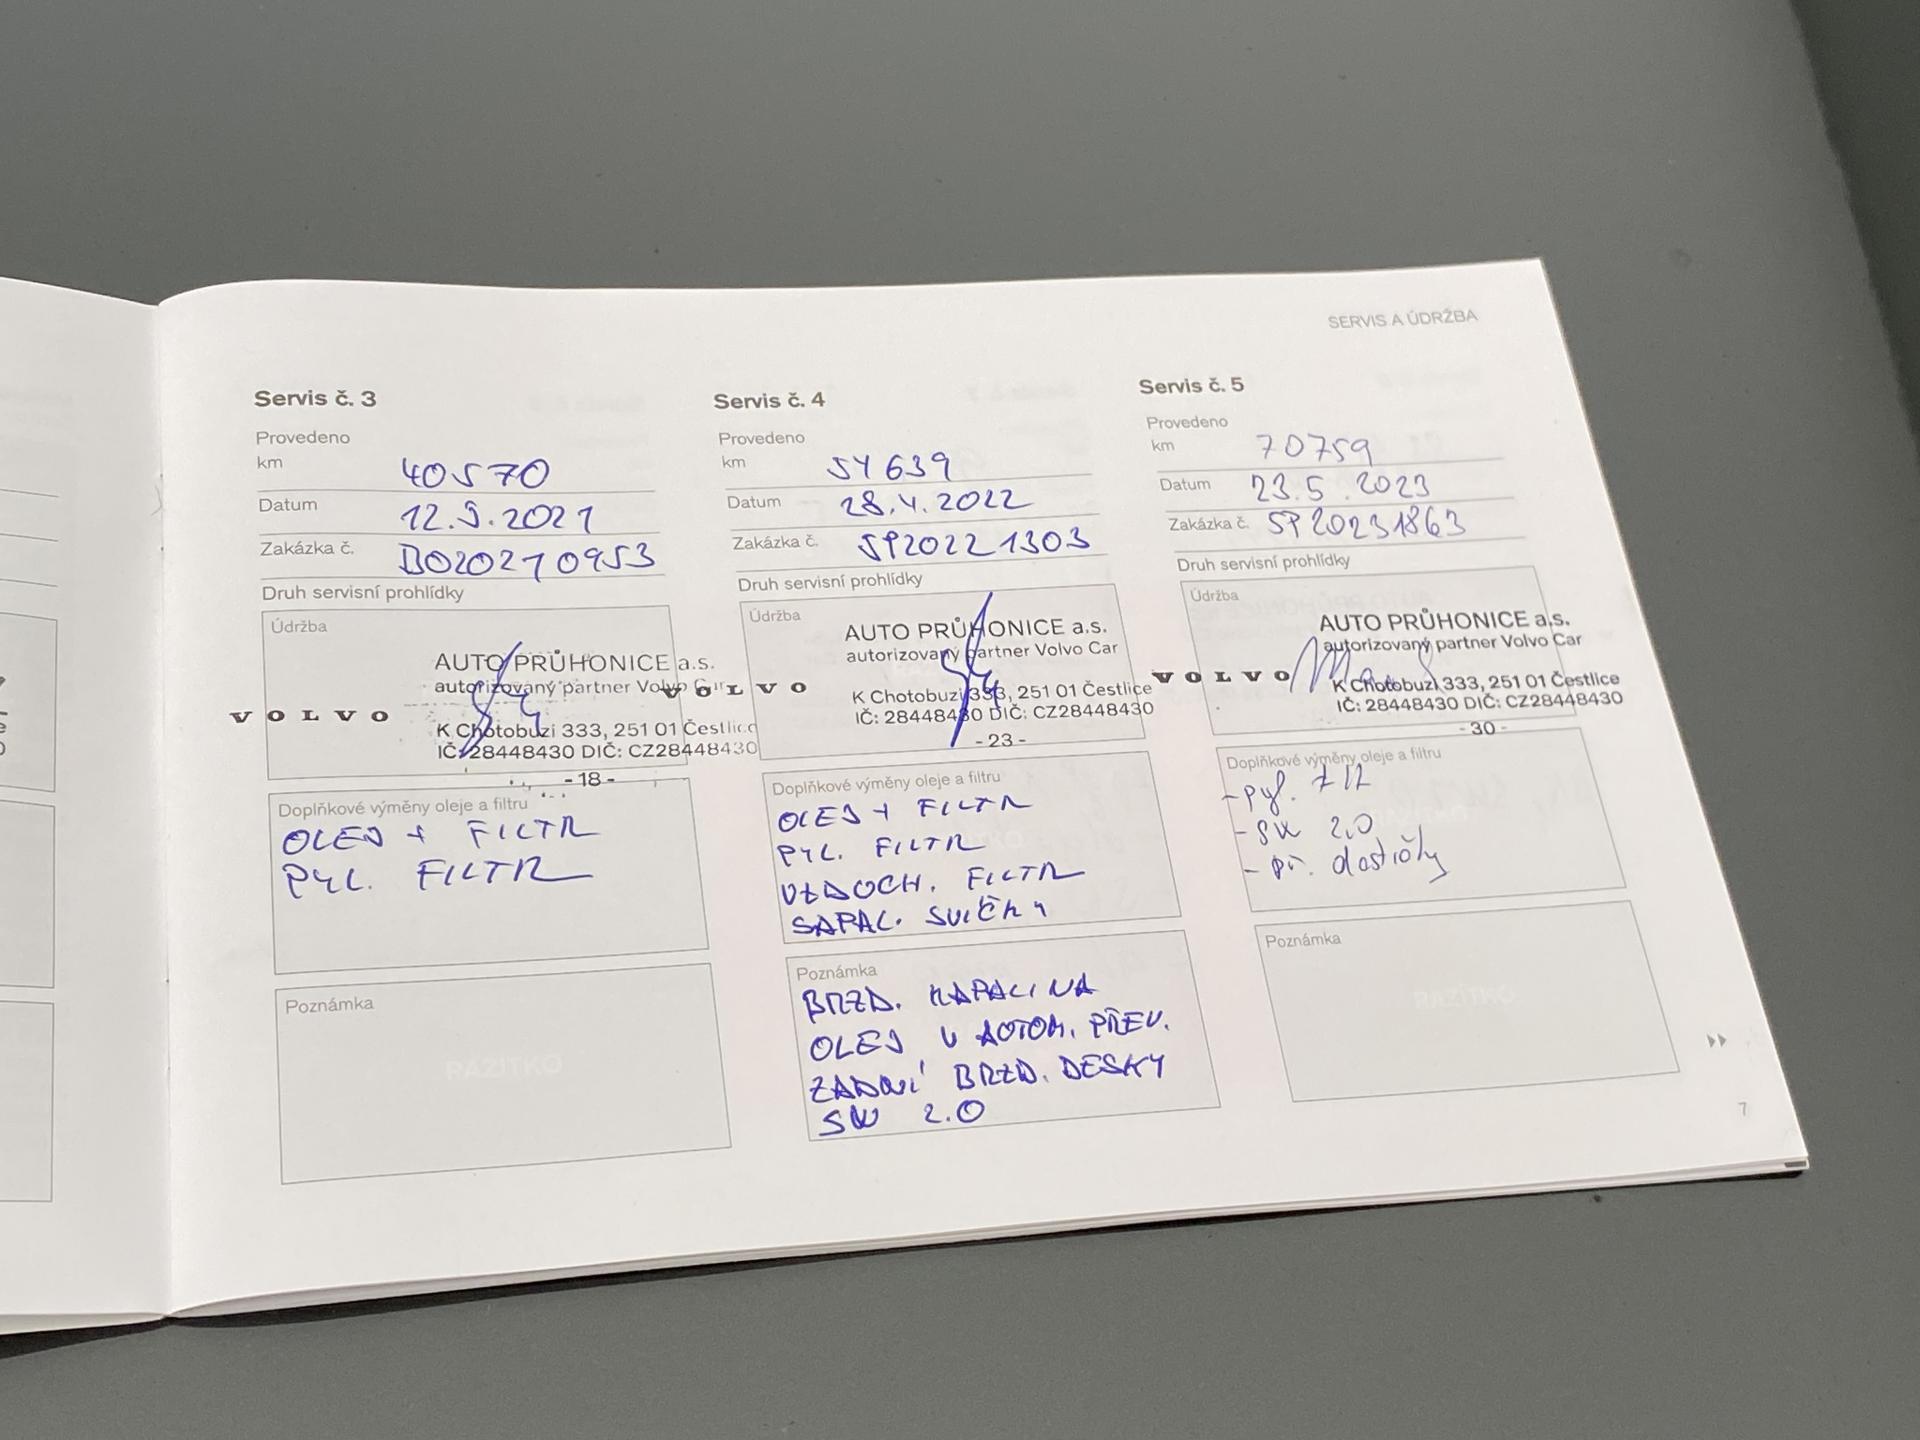 SERVIS A ÚDRŽBA
Servis č. 3
Provedeno
km 40570
Datum 12.5.2021
Zakázka č. BO20210953
Druh servisní prohlídky
Údržba
AUTO PRŮHONICE a.s.
autorizovaný partner Volvo Car
VOLVO
K Chotobuzi 333, 251 01 Čestlice
IČ: 28448430 DIČ: CZ28448430
- 18 -
Doplňkové výměny oleje a filtru
OLEJ + FILTR
PYL. FILTR
Poznámka
RAZÍTKO
Servis č. 4
Provedeno
km 54639
Datum 28.4.2022
Zakázka č. SP20221303
Druh servisní prohlídky
Údržba
AUTO PRŮHONICE a.s.
autorizovaný partner Volvo Car
VOLVO
K Chotobuzi 333, 251 01 Čestlice
IČ: 28448430 DIČ: CZ28448430
- 23 -
Doplňkové výměny oleje a filtru
OLEJ + FILTR
PYL. FILTR
VZDUCH. FILTR
ZAPAL. SVÍČKY
Poznámka
BRZD. KAPALINA
OLEJ V AUTOM. PŘEV.
ZADNÍ BRZD. DESKY
SW 2.0
Servis č. 5
Provedeno
km 70759
Datum 23.5.2023
Zakázka č. SP20231863
Druh servisní prohlídky
Údržba
AUTO PRŮHONICE a.s.
autorizovaný partner Volvo Car
VOLVO
K Chotobuzi 333, 251 01 Čestlice
IČ: 28448430 DIČ: CZ28448430
- 30 -
Doplňkové výměny oleje a filtru
- pyl.
- SW 2.0
- př. destičky
Poznámka
RAZÍTKO
7